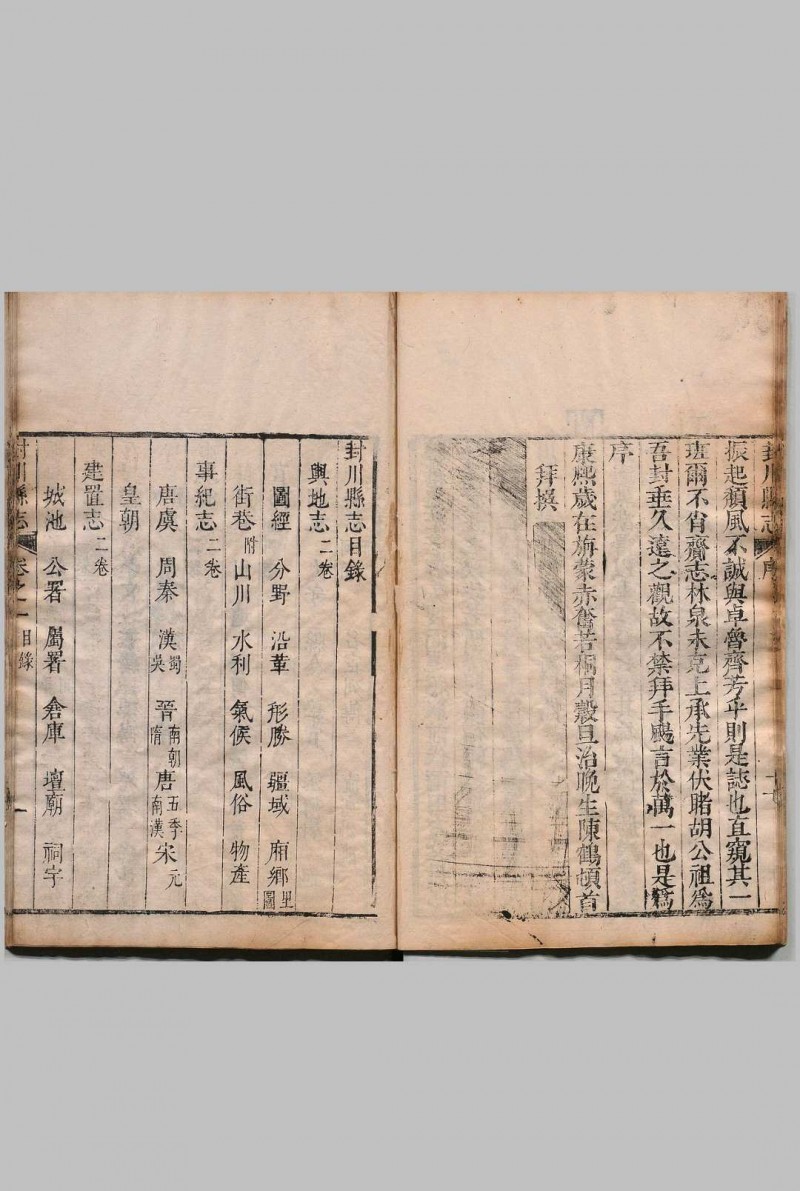 封川縣志 序
振起頹風不誠與卓魯齊芳乎則是誌也直窺其一
班爾不肖齋志林泉未克上承先業伏睹胡公祖為
吾封垂久遠之觀故不禁拜手颺言於萬一也是為
序
康熙歲在旃蒙赤奮若桐月穀旦治晚生陳鶴頓首
拜撰
封川縣志目錄
輿地志二卷
圖經 分野 沿革 形勝 疆域 廂鄉里圖
街巷附 山川 水利 氣候 風俗 物產
事紀志二卷
唐虞 周秦 漢蜀吳 晉南朝隋 唐五季南漢 宋元
皇朝
建置志二卷
城池 公署 屬署 倉庫 壇廟 祠宇
封川縣志 卷之一 目錄 一